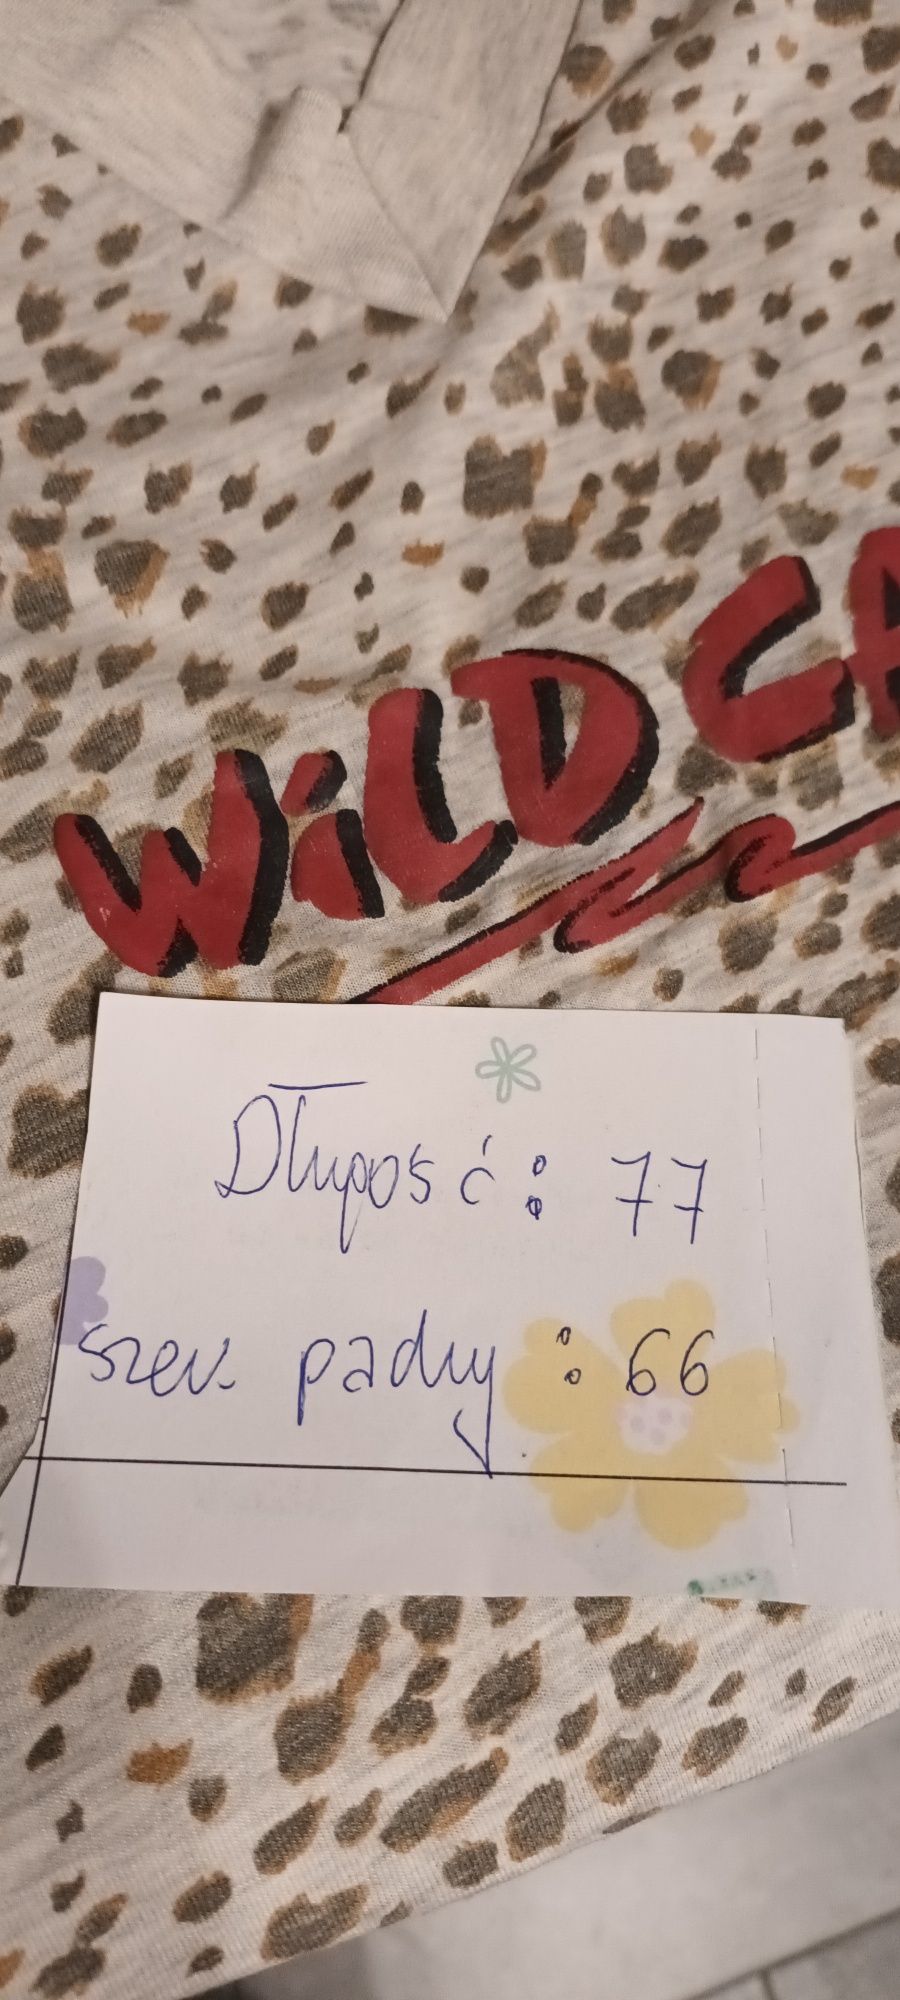 WiLD CA
Długość : 77
szer. pachy : 66